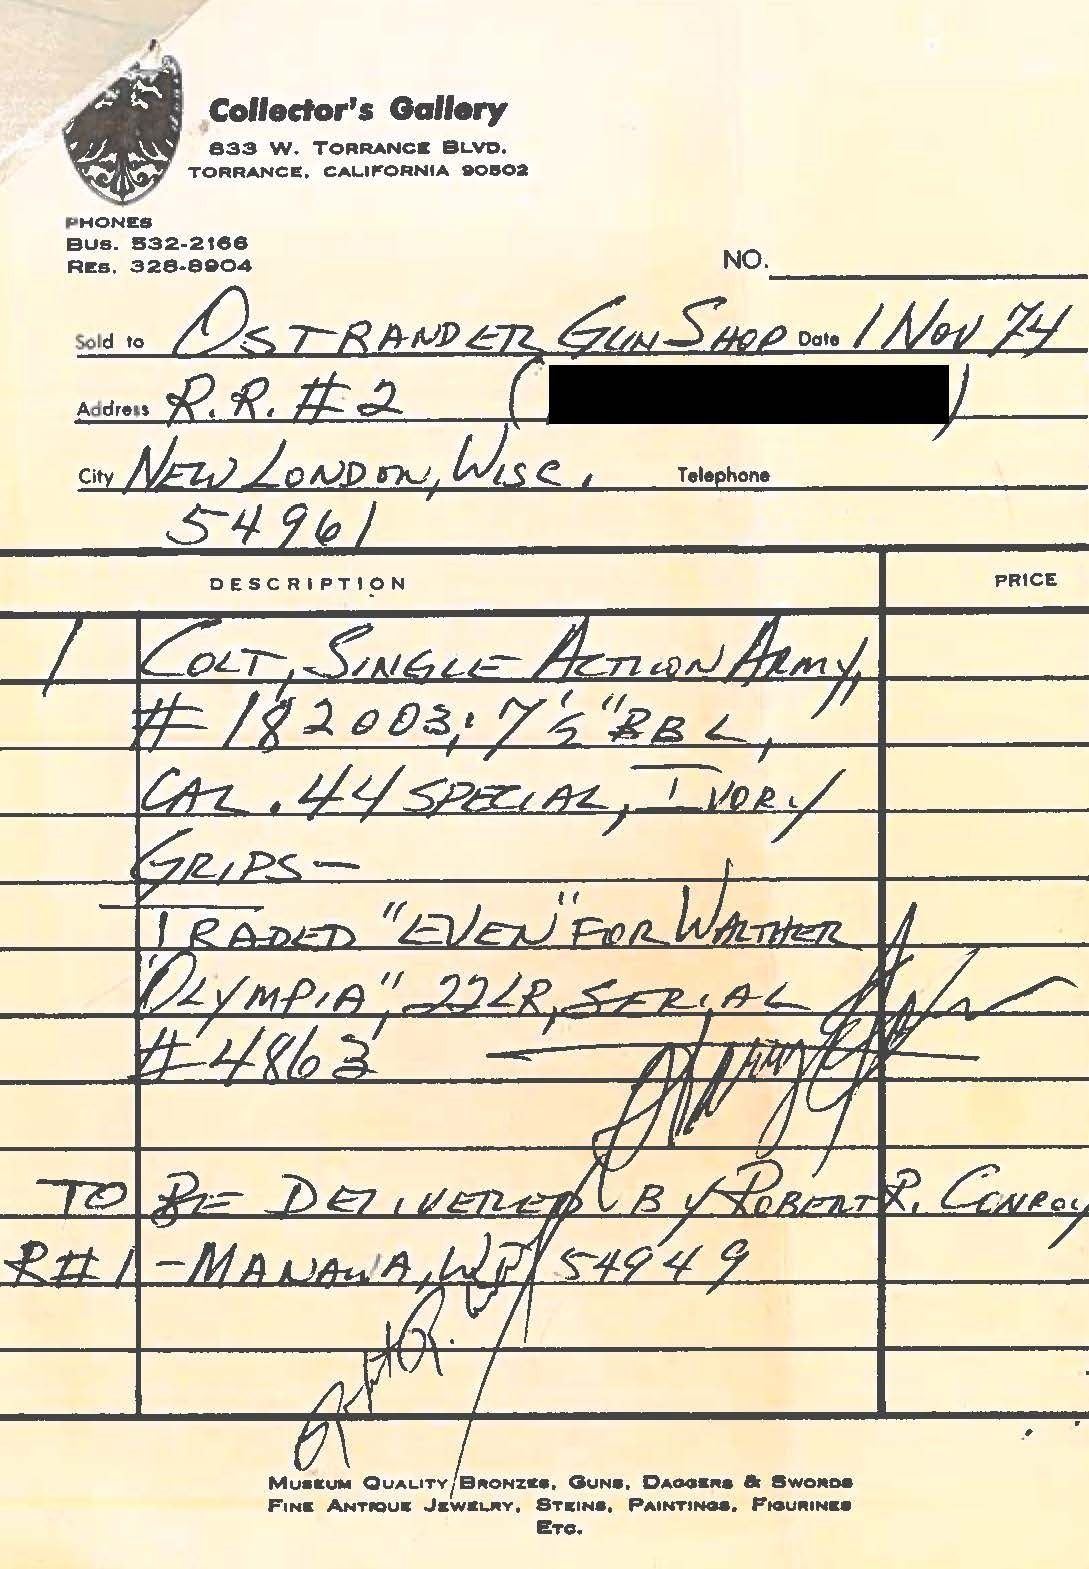 Collector's Gallery
833 W. TORRANCE BLVD.
TORRANCE, CALIFORNIA 90502
PHONES
BUS. 532-2166
RES. 328-8904
NO.
Sold to OSTRANDER GUN SHOP Date 1 NOV 74
Address R.R. #2 ( )
City NEW LONDON, WISC. Telephone
54961
DESCRIPTION PRICE
1 COLT, SINGLE ACTION ARMY,
# 182003; 7 1/2" BBL,
CAL .44 SPECIAL, IVORY
GRIPS —
TRADED "EVEN" FOR WALTHER
"OLYMPIA", 22LR, SERIAL
# 4863
TO BE DELIVERED BY ROBERT R. CONROY
R#1 - MANAWA, WI 54949
Robert R.
MUSEUM QUALITY BRONZES, GUNS, DAGGERS & SWORDS
FINE ANTIQUE JEWELRY, STEINS, PAINTINGS, FIGURINES
ETC.